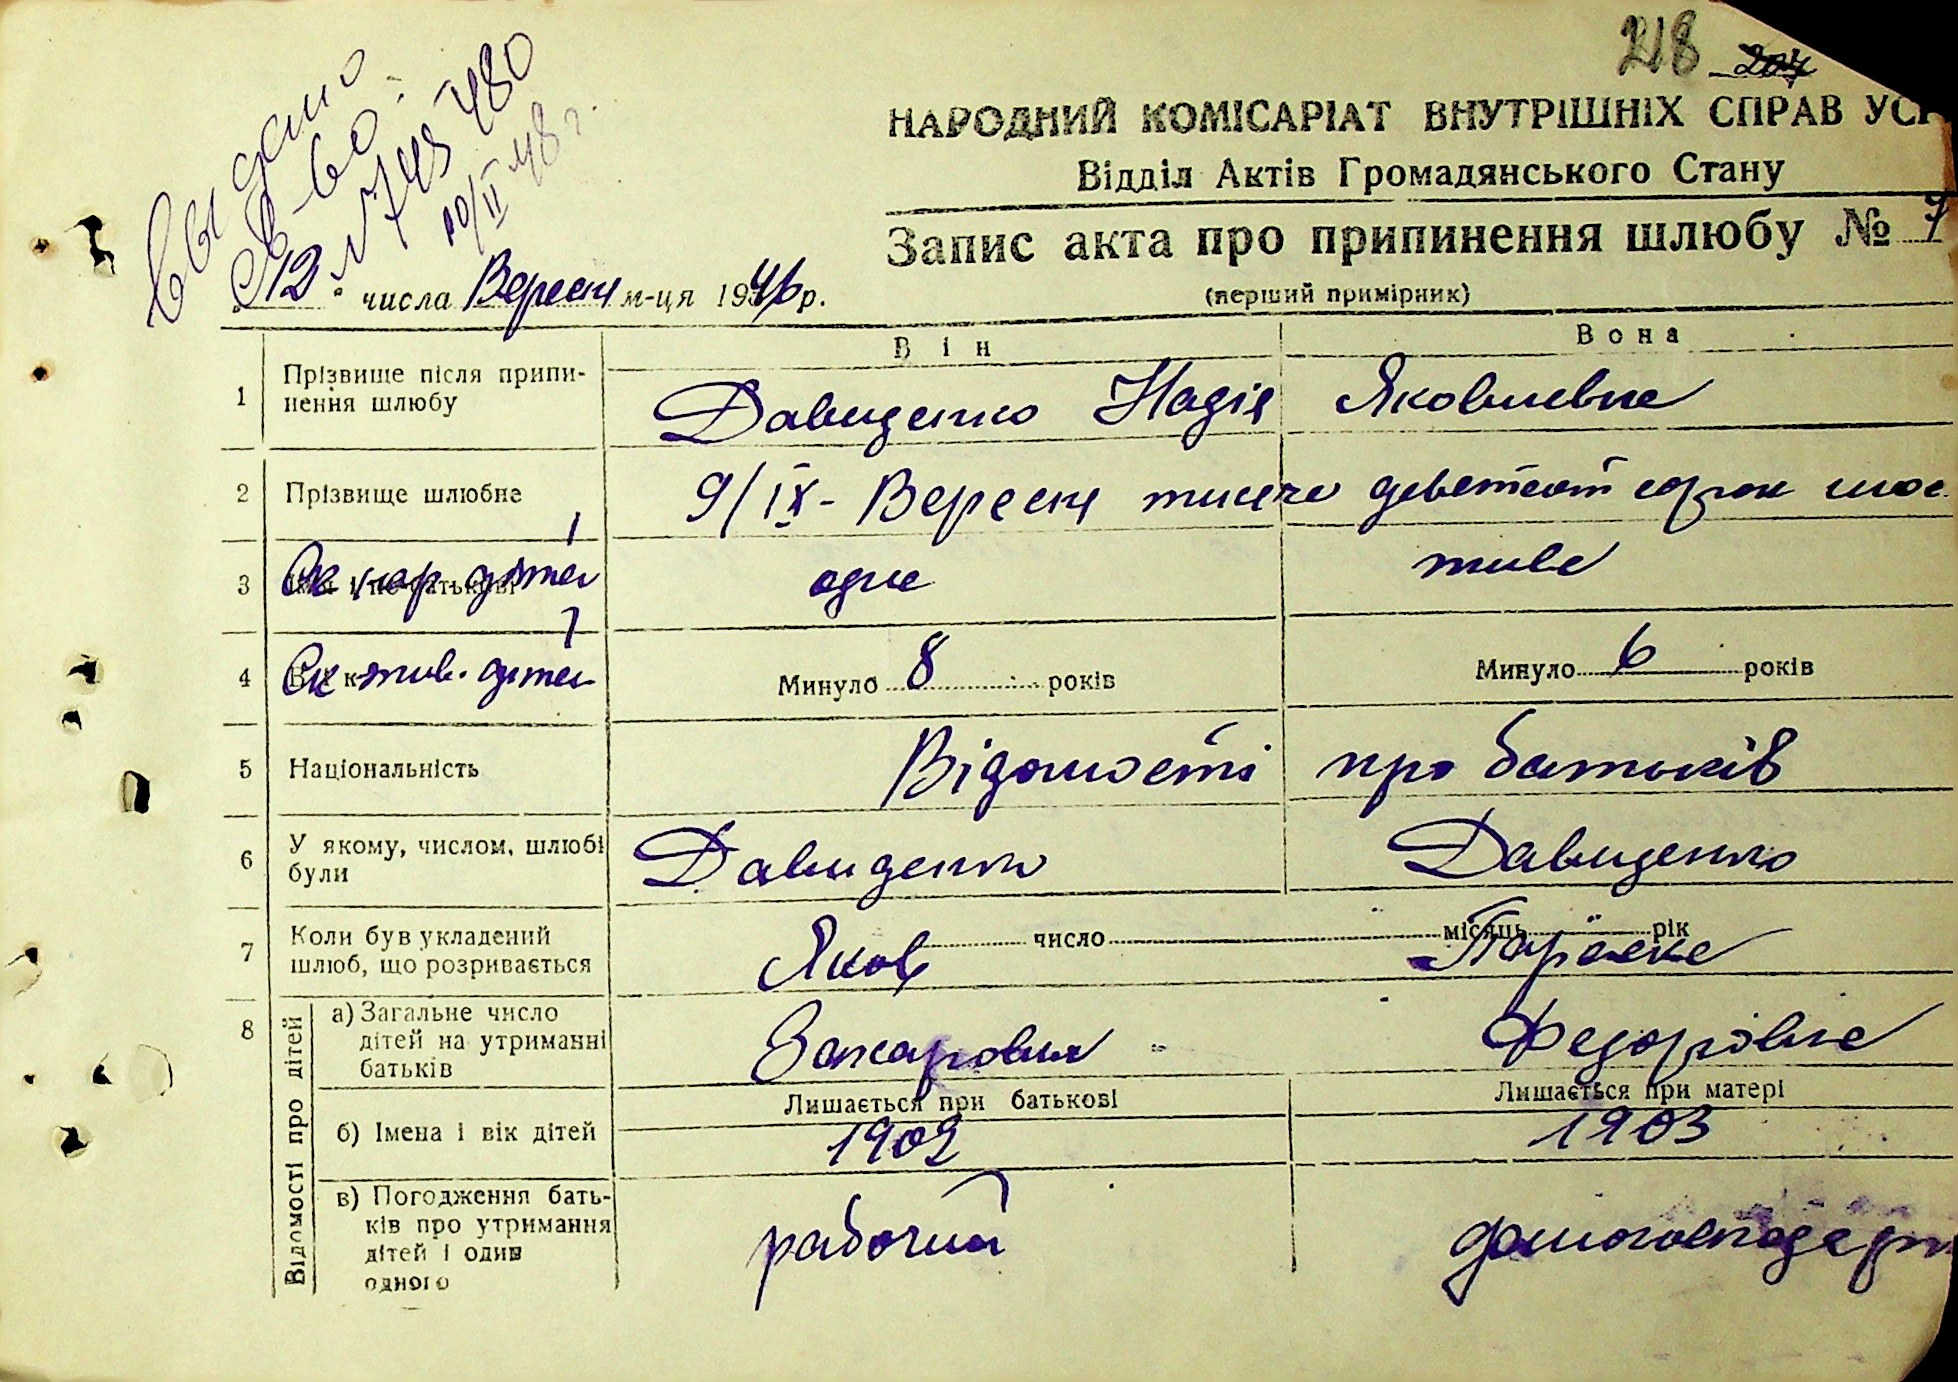 218 204
НАРОДНИЙ КОМІСАРІАТ ВНУТРІШНІХ СПРАВ УСР
Відділ Актів Громадянського Стану
Запис акта про припинення шлюбу № 7
(перший примірник)
выдано
св-во
10/II 48 г.
12 числа Вересня м-ця 1946 р.
Він Вона
1 Прізвище після припи-
нення шлюбу
Давиденко Надія Яковлевна
2 Прізвище шлюбне 9/IX - Вересня тисяча девятсот сорок шос
3 Ск нар. дітей одна тиве
4 Ск жив. дітей Минуло 8 років Минуло 6 років
5 Національність Відомості про батьків
6 У якому, числом, шлюбі
були
Давиденко Давиденко
7 Коли був укладений
шлюб, що розривається
число місяць рік
Яков Параска
8 Відомості про дітей
а) Загальне число
дітей на утриманні
батьків
Захарович Федоровна
Лишається при батькові Лишається при матері
б) Імена і вік дітей 1902 1903
в) Погодження бать-
ків про утримання
дітей і один
одного
рабочий домогосподарк